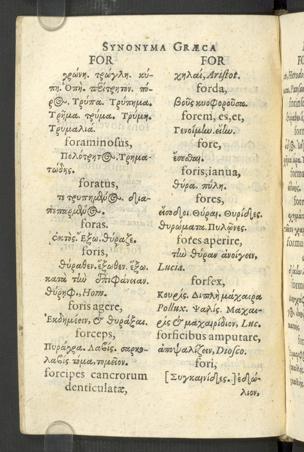 SYNONYMA GRÆCA
FOR
χρώνη. τρώγλη. κύ-
πη. Ὀπή.
Τρύπα. Τρύπημα.
Τρῆμα. τρύμα. Τρύμη.
Τρυμαλία.
foraminosus,
Τρημα-
τώδης.
foratus,
foras.
ἐκτός. Ἔξω. θύραζε.
foris,
θύραθεν. ἔξωθεν. ἔξω.
κατὰ τὴν ἐπιφάνειαν.
Hom.
foris agere,
Ἐκδημεῖν, &
forceps,
Πυράγρα. Λαβίς. σαρκο-
λαβὶς
forcipes cancrorum
denticulatæ,
FOR
χηλαί, Aristot.
forda,
βοῦς κυοφοροῦσα.
forem, es, et,
Γενοίμην. εἴην.
fore,
ἔσεσθαι.
foris, ianua,
θύρα. πύλη.
fores,
εἴσοδοι. Θύραι. Θυρίδες.
Θυρώματα. Πυλῶνες.
fores aperire,
τὴν θύραν ἀνοίγειν,
Lucia.
forfex,
Κουρίς. Διπλῆ μάχαιρα
Pollux. Ψαλίς. Μάχαι-
ρις & μαχαιρίδιον, Luc.
forficibus amputare,
ἀποψαλίζειν, Diosco.
fori,
[Συγκαινίδες.] ἐδώ-
λιον.